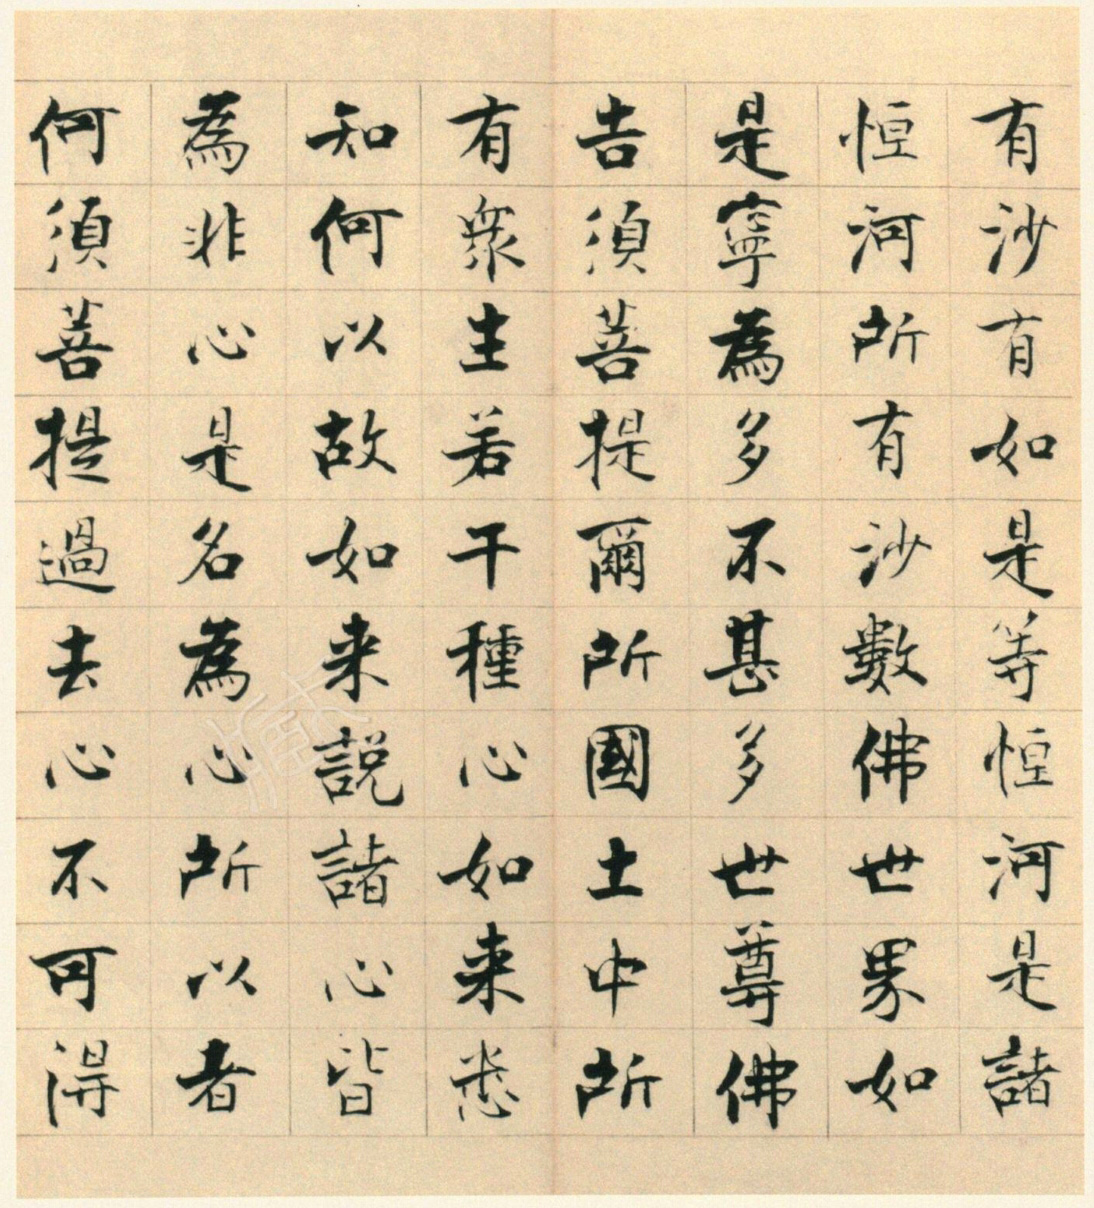 有沙有如是等恒河是諸
恒河所有沙數佛世界如
是寧為多不甚多世尊佛
告須菩提爾所國土中所
有衆生若干種心如来悉
知何以故如来說諸心皆
為非心是名為心所以者
何須菩提過去心不可得